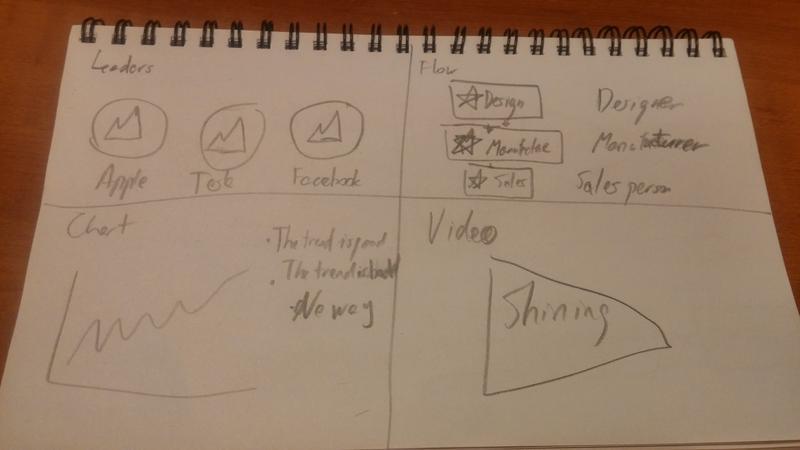 Leaders
Apple
Facebook
Flow
Design
Designer
Manufacturer
Sales
Sales person
Chart
• The trend is good
• The trend is bad
• No way
Video
Shining